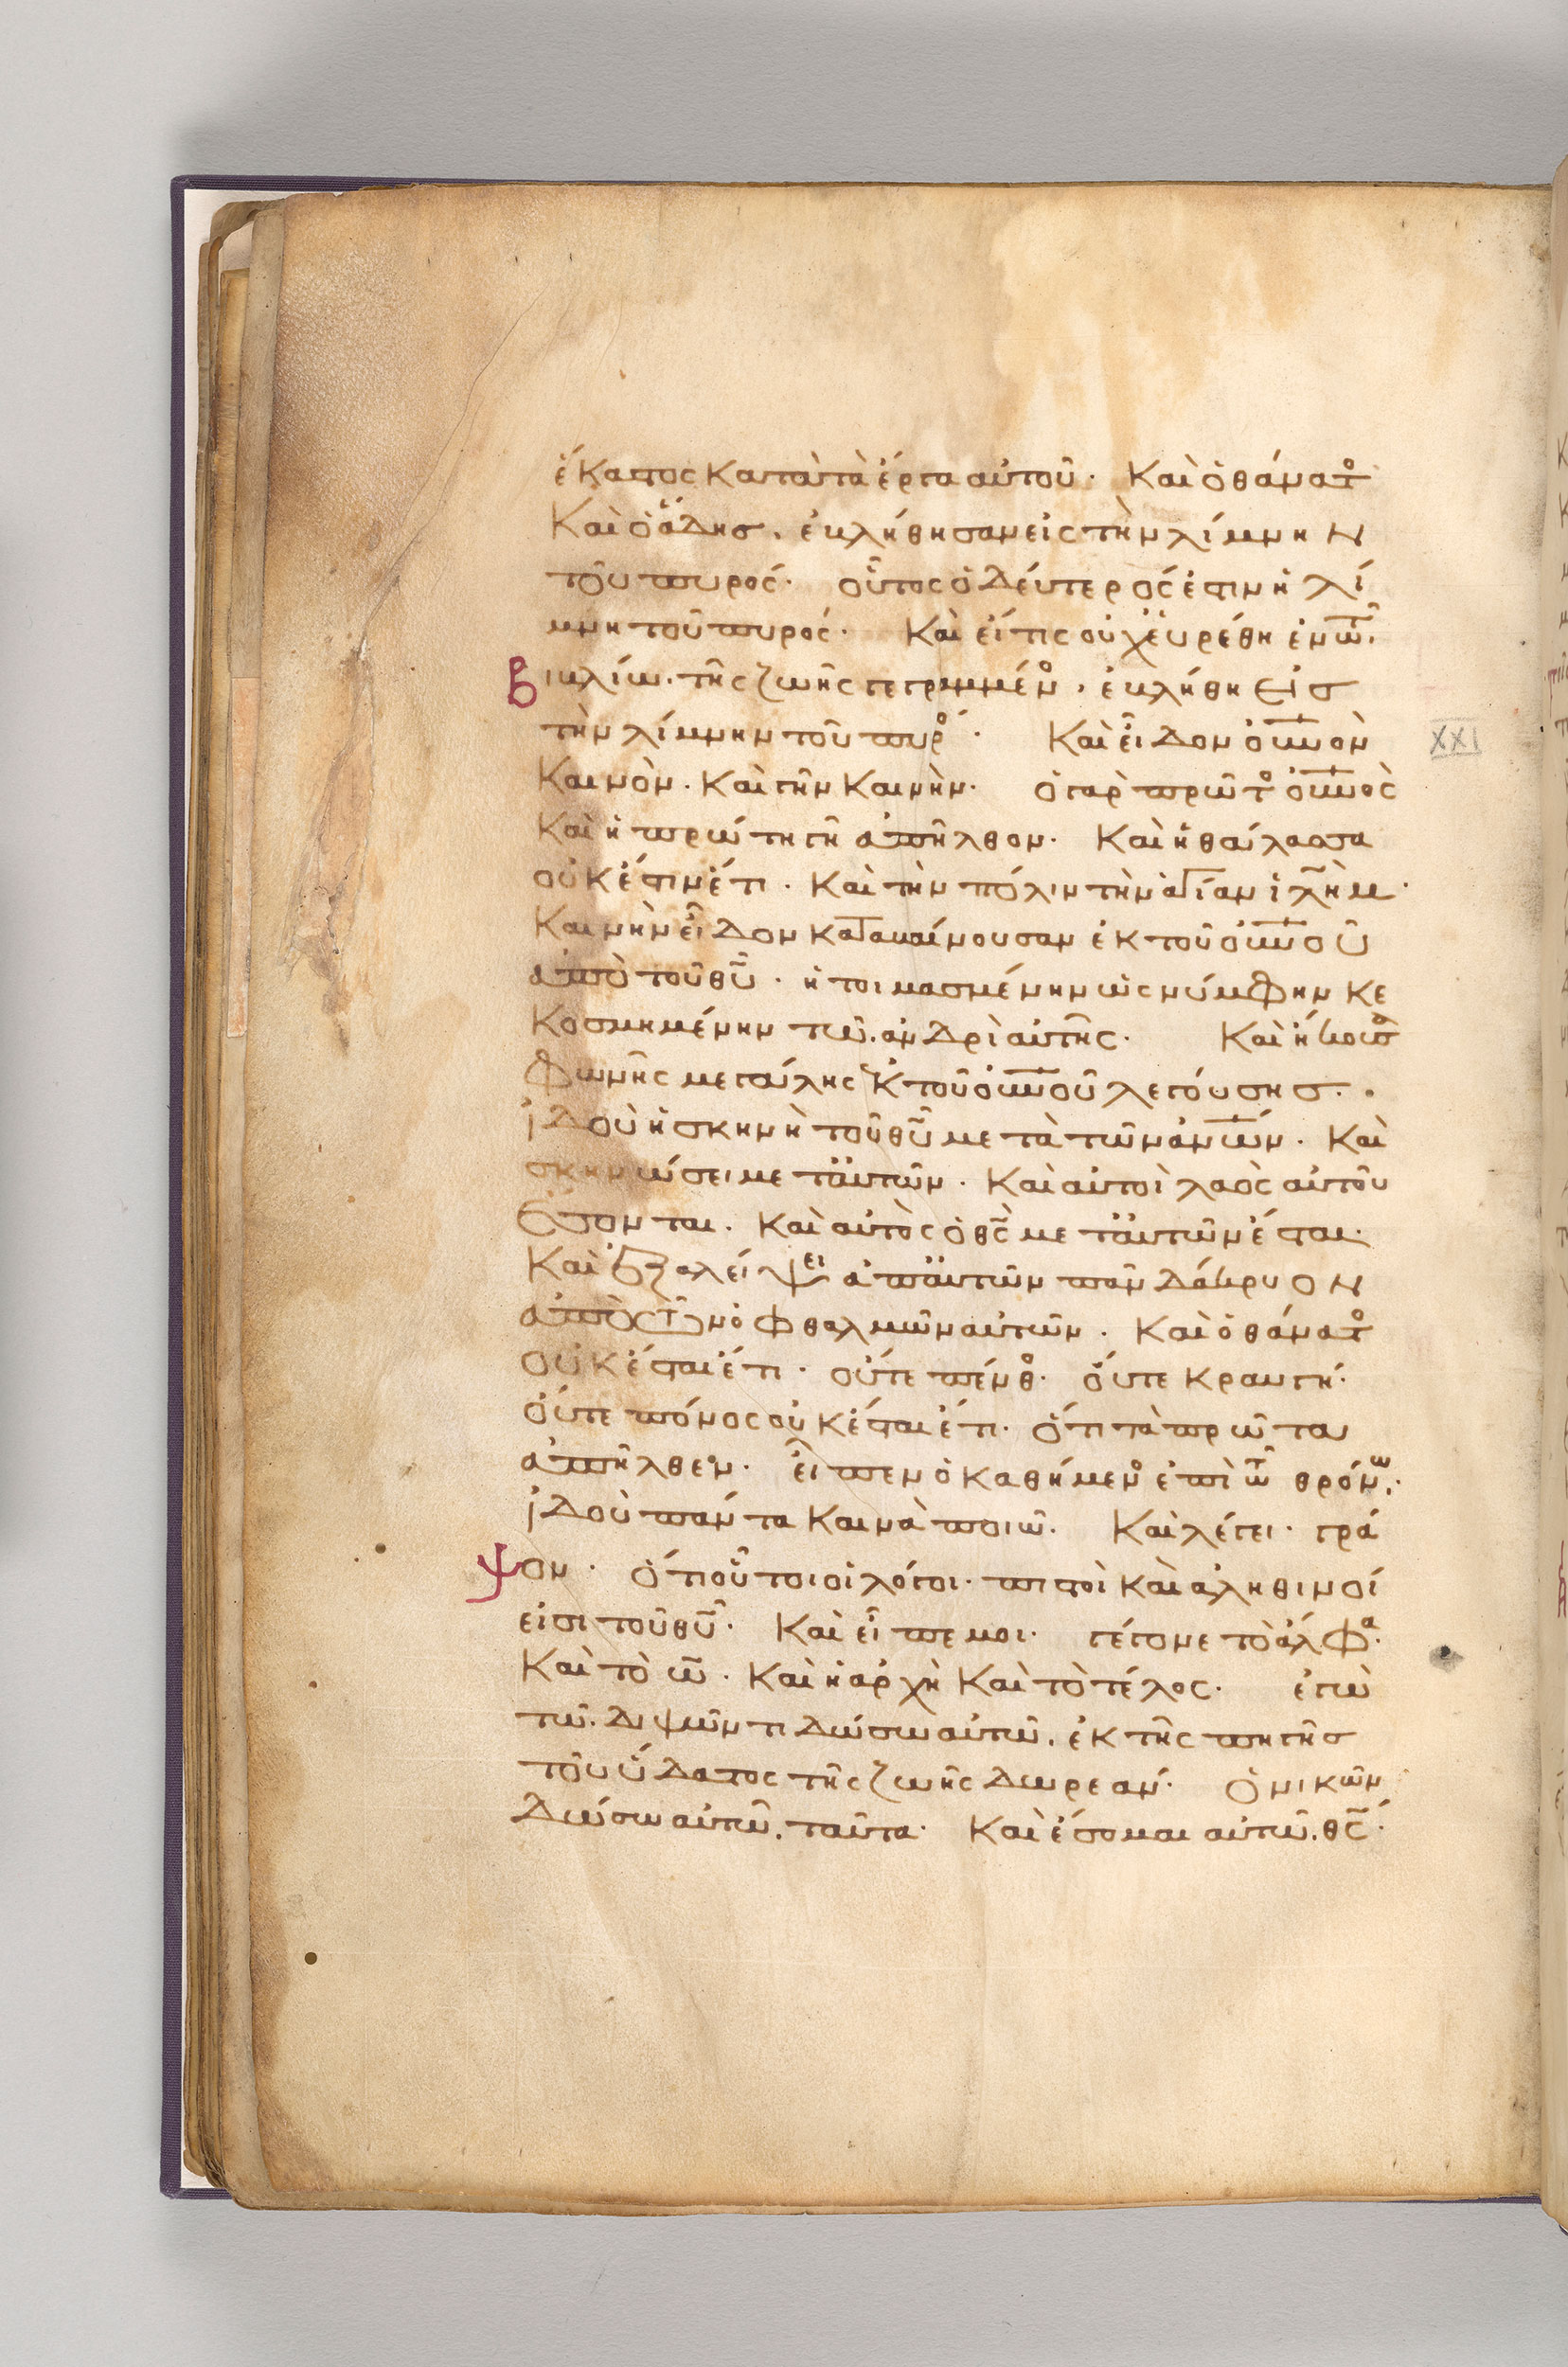 ἕκαστος κατὰ τὰ ἔργα αὐτοῦ· καὶ ὁ θάνατο
καὶ ὁ ἅδησ. ἐβλήθησαν εἰς τὴν λίμνην
τοῦ πυρός· οὗτος ὁ δεύτερός ἐστιν ἡ λί
μνη τοῦ πυρός· καὶ εἴ τις οὐχ εὑρέθη ἐν τῶ
βιβλίω τῆς ζωῆς γεγραμμένο, ἐβλήθη εἰσ
τὴν λίμνην τοῦ πυρό· καὶ εἶδον οὐνον
XXI
καινὸν. καὶ γῆν καινὴν· ὁ γὰρ πρῶτο οὐνος
καὶ ἡ πρώτη γῆ ἀπῆλθον· καὶ ἡ θάλασσα
οὐκ ἔστιν ἔτι. καὶ τὴν πόλιν τὴν ἁγίαν ἰλὴμ·
καινὴν εἶδον καταβαίνουσαν ἐκ τοῦ οὐνου
ἀπὸ τοῦ θυ· ἡτοιμασμένην ὡς νύμφην κε
κοσμημένην τῶ ἀνδρὶ αὐτῆς· καὶ ἤκουσα
φωνῆς μεγάλης ἐκ τοῦ οὐνου λεγούσησ.
ἰδοὺ ἡ σκηνὴ τοῦ θυ μετὰ τῶν ἀνων. καὶ
σκηνώσει μετ' αὐτῶν. καὶ αὐτοὶ λαὸς αὐτοῦ
ἔσονται. καὶ αὐτὸς ὁ θς μετ' αὐτῶν ἔσται·
καὶ ἐξαλείψει ἀπ' αὐτῶν πᾶν δάκρυον
ἀπὸ τῶν ὀφθαλμῶν αὐτῶν. καὶ ὁ θάνατο
οὐκ ἔσται ἔτι. οὔτε πένθο· οὔτε κραυγή·
οὔτε πόνος οὐκ ἔσται ἔτι. ὅτι τὰ πρῶτα
ἀπῆλθεν· εἶπεν ὁ καθήμενο ἐπὶ τῶ θρόνω·
ἰδοὺ πάντα καινὰ ποιῶ· καὶ λέγει· γρά
ψον· ὅτι οὗτοι οἱ λόγοι πιστοὶ καὶ ἀληθινοί
εἰσι τοῦ θυ· καὶ εἶπε μοι· γέγονε τὸ ἄλφα·
καὶ τὸ ω. καὶ ἡ ἀρχὴ καὶ τὸ τέλος· ἐγὼ
τῶ διψῶντι δώσω αὐτῶ ἐκ τῆς πηγῆσ
τοῦ ὕδατος τῆς ζωῆς δωρεάν· ὁ νικῶν
δώσω αὐτῶ ταῦτα· καὶ ἔσομαι αὐτῶ θς·